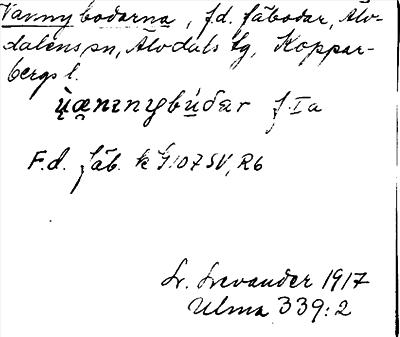 Vannybodarna, f.d. fäbodar, Älv-
dalens sn, Älvdals tg, Koppar-
bergs l.
f. I a
F.d. fäb. k G107SV, R6
Lr. Levander 1917
Ulma 339:2